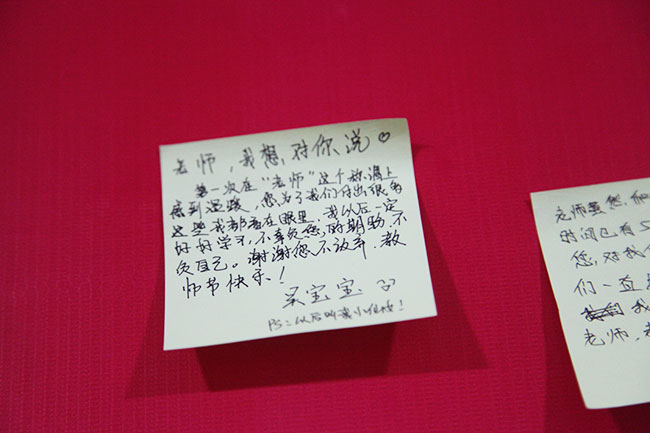 老师，我想对你说♡
第一次在“老师”这个称谓上
感到温暖，您为了我们付出很多
这些我都看在眼里．我以后一定
好好学习，不辜负您的期盼．不
负自己。谢谢您不放弃．教
师节快乐！
吴宝宝
PS：以后叫
老师虽然，
时间已有
您，对我
们一直
我
老师，